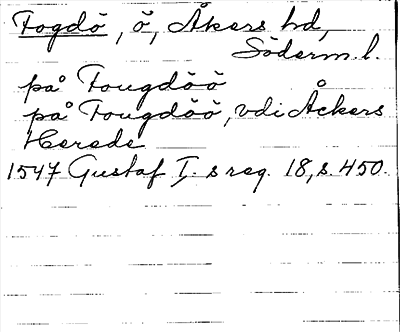 Fogdö, ö, Åkers hd,
Söderm. l.
på Fougdöö
på Fougdöö, vdi Åckers
Herede
1547 Gustaf I:s reg. 18, s. 450.